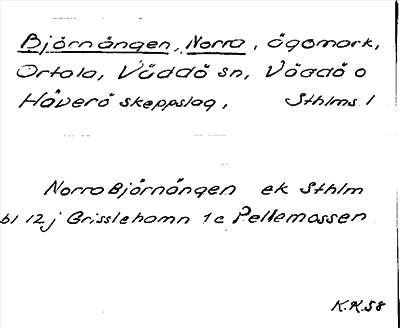 Björnängen, Norra, ägomark,
Ortala, Väddö sn, Väddö o
Häverö skeppslag, Sthlms l
Norra Björnängen ek Sthlm
bl 12j Grisslehamn 1c Pellemossen
K.K.58